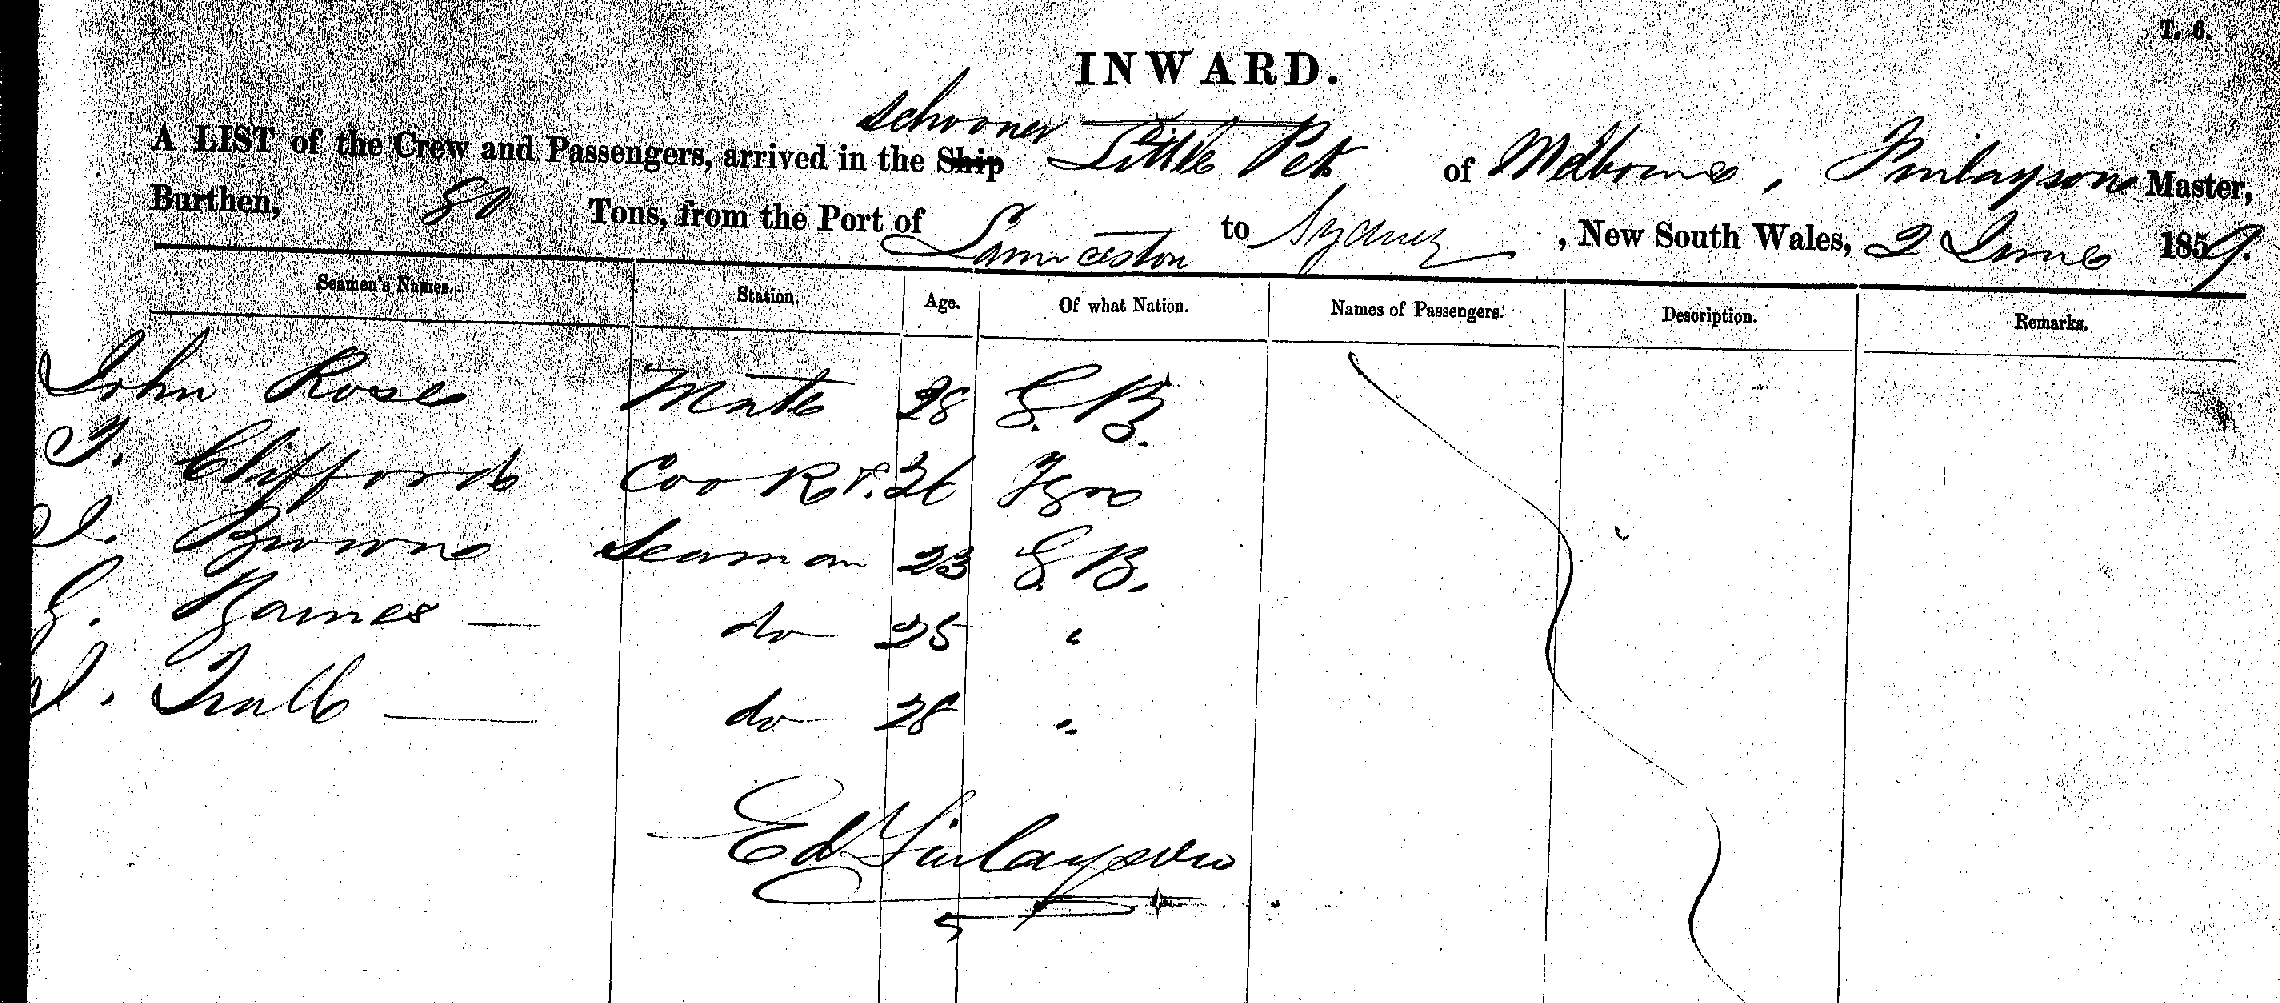 T. 6.
INWARD.
schooner
A LIST of the Crew and Passengers, arrived in the Ship Little Pet of Melbourne, Finlayson Master,
Burthen, 80 Tons, from the Port of Launceston to Sydney, New South Wales, 2 June 1859.
Seamen's Names. Station. Age. Of what Nation. Names of Passengers. Description. Remarks.
John Rose Mate 28 G. B.
T. Clifford Cook 26
J. Browne Seaman 23 G. B.
G. do 25 "
J. do 28 "
Ed Finlayson